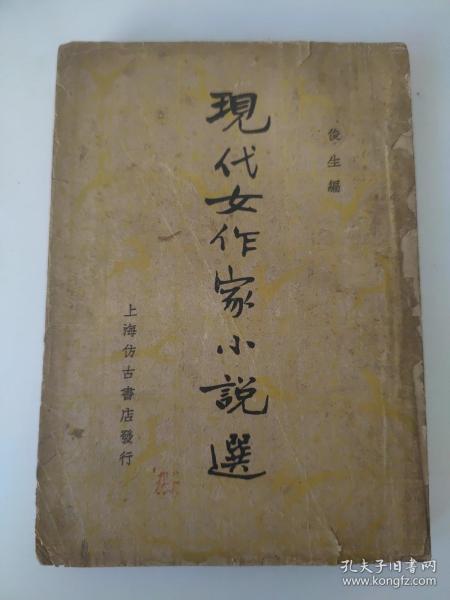 俊生編
現代女作家小說選
上海仿古書店發行
孔夫子旧书网
www.kongfz.com